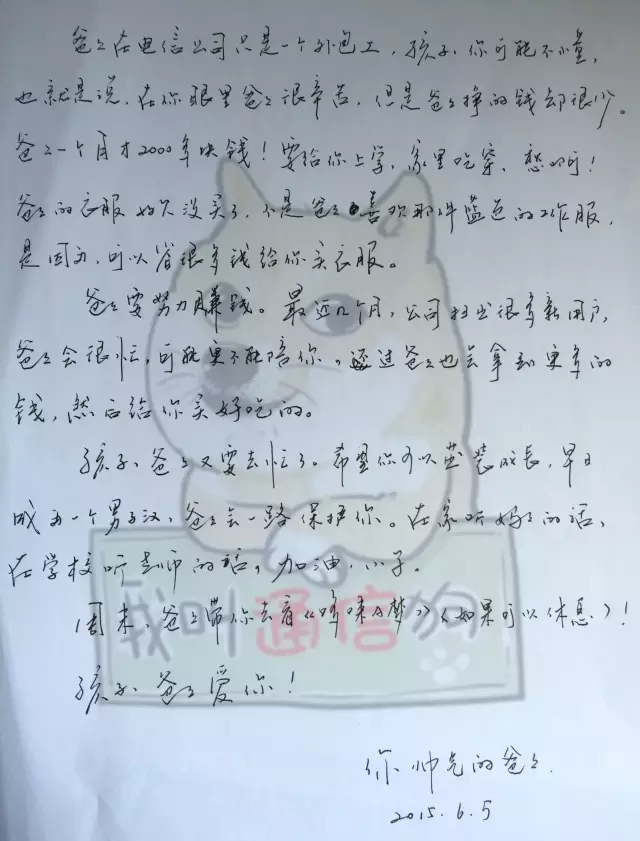 爸爸在电信公司只是一个外包工，孩子，你可能不懂，
也就是说，在你眼里爸爸很辛苦，但是爸爸挣的钱却很少。
爸爸一个月才2000多块钱！要给你上学、家里吃穿、愁啊！
爸爸的衣服好久没买了，不是爸爸喜欢那件蓝色的工作服，
是因为，可以省很多钱给你买衣服。
爸爸要努力赚钱。最近几个月，公司接出很多新用户，
爸爸会很忙，可能更不能陪你，还过爸爸也会拿到更多的
钱，然后给你买好吃的。
孩子、爸爸又要去忙了。希望你可以茁装成长，早日
成为一个男子汉，爸爸会一路保护你。在家听妈妈的话，
在学校听老师的话，加油，小子。
周末，爸爸带你去看《哆唻A梦》（如果可以休息）！
孩子、爸爸爱你！
你帅气的爸爸
2015.6.5
我叫通信狗